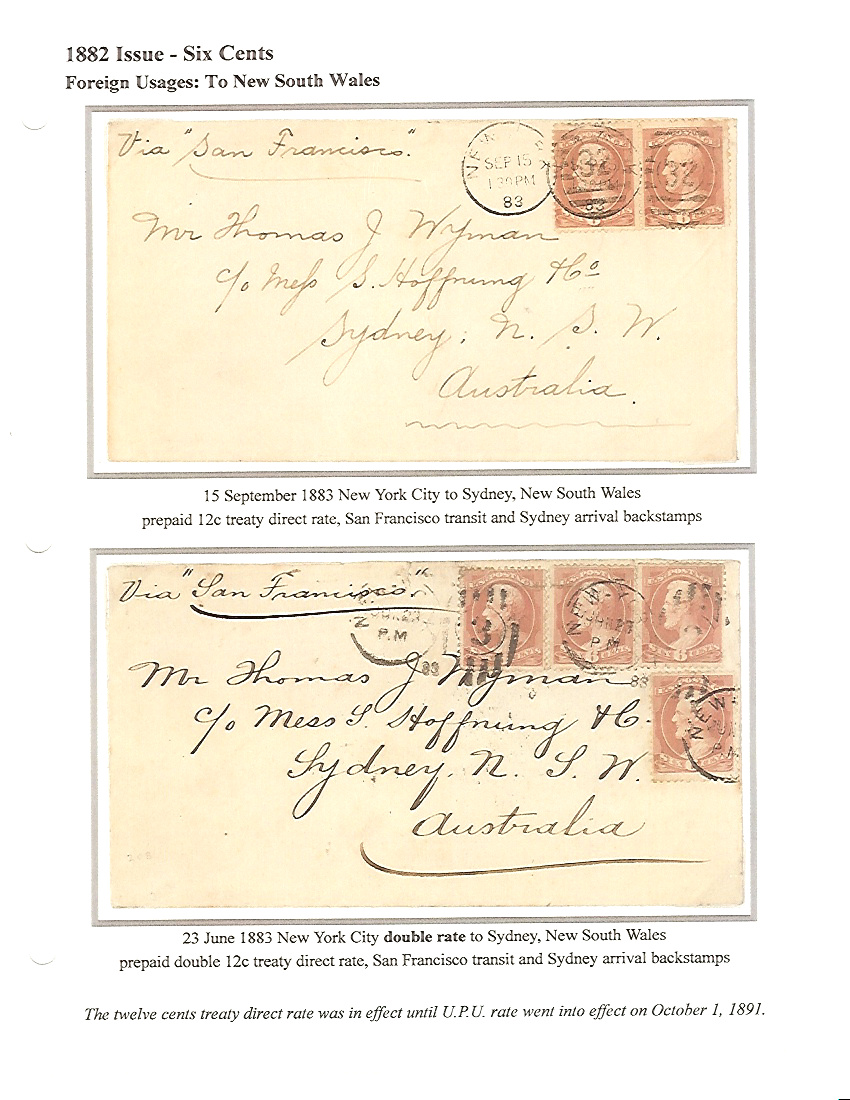 1882 Issue - Six Cents
Foreign Usages: To New South Wales
Via "San Francisco".
NEW
SEP 15
130PM
83
32
83
32
Mr Thomas J Wyman
c/o Mess S. Hoffnung & Co
Sydney, N. S. W.
Australia.
15 September 1883 New York City to Sydney, New South Wales
prepaid 12c treaty direct rate, San Francisco transit and Sydney arrival backstamps
Via "San Francisco"
P.M
83
3
NEW
P M
83
SIX CENTS
Mr Thomas J Wyman
c/o Mess S. Hoffnung & C.
Sydney, N. S. W.
NEW
Australia
23 June 1883 New York City double rate to Sydney, New South Wales
prepaid double 12c treaty direct rate, San Francisco transit and Sydney arrival backstamps
The twelve cents treaty direct rate was in effect until U.P.U. rate went into effect on October 1, 1891.